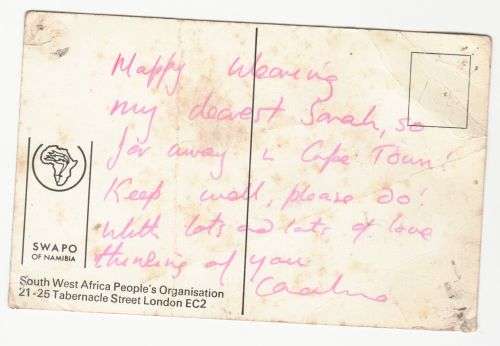 Happy Weaving
my dearest Sarah, so
far away in Cape Town!
Keep well, please do!
With lots and lots of love
thinking of you
SWAPO
OF NAMIBIA
South West Africa People's Organisation
21-25 Tabernacle Street London EC2